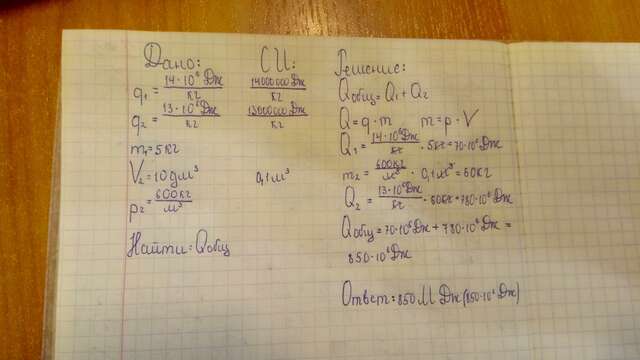 Дано:
q₁ = 14·10⁶ Дж/кг
q₂ = 13·10⁶ Дж/кг
m₁=5кг
V₂=10дм³
p₂=600кг/м³
Найти: Qобщ
СИ:
14000000 Дж/кг
13000000 Дж/кг
0,1 м³
Решение:
Qобщ=Q₁+Q₂
Q=q·m m=p·V
Q₁=14·10⁶Дж/кг·5кг=70·10⁶Дж
m₂=600кг/м³·0,1м³=60кг
Q₂=13·10⁶Дж/кг·60кг=780·10⁶Дж
Qобщ=70·10⁶Дж+780·10⁶Дж=
850·10⁶Дж
Ответ:850 МДж(850·10⁶Дж)